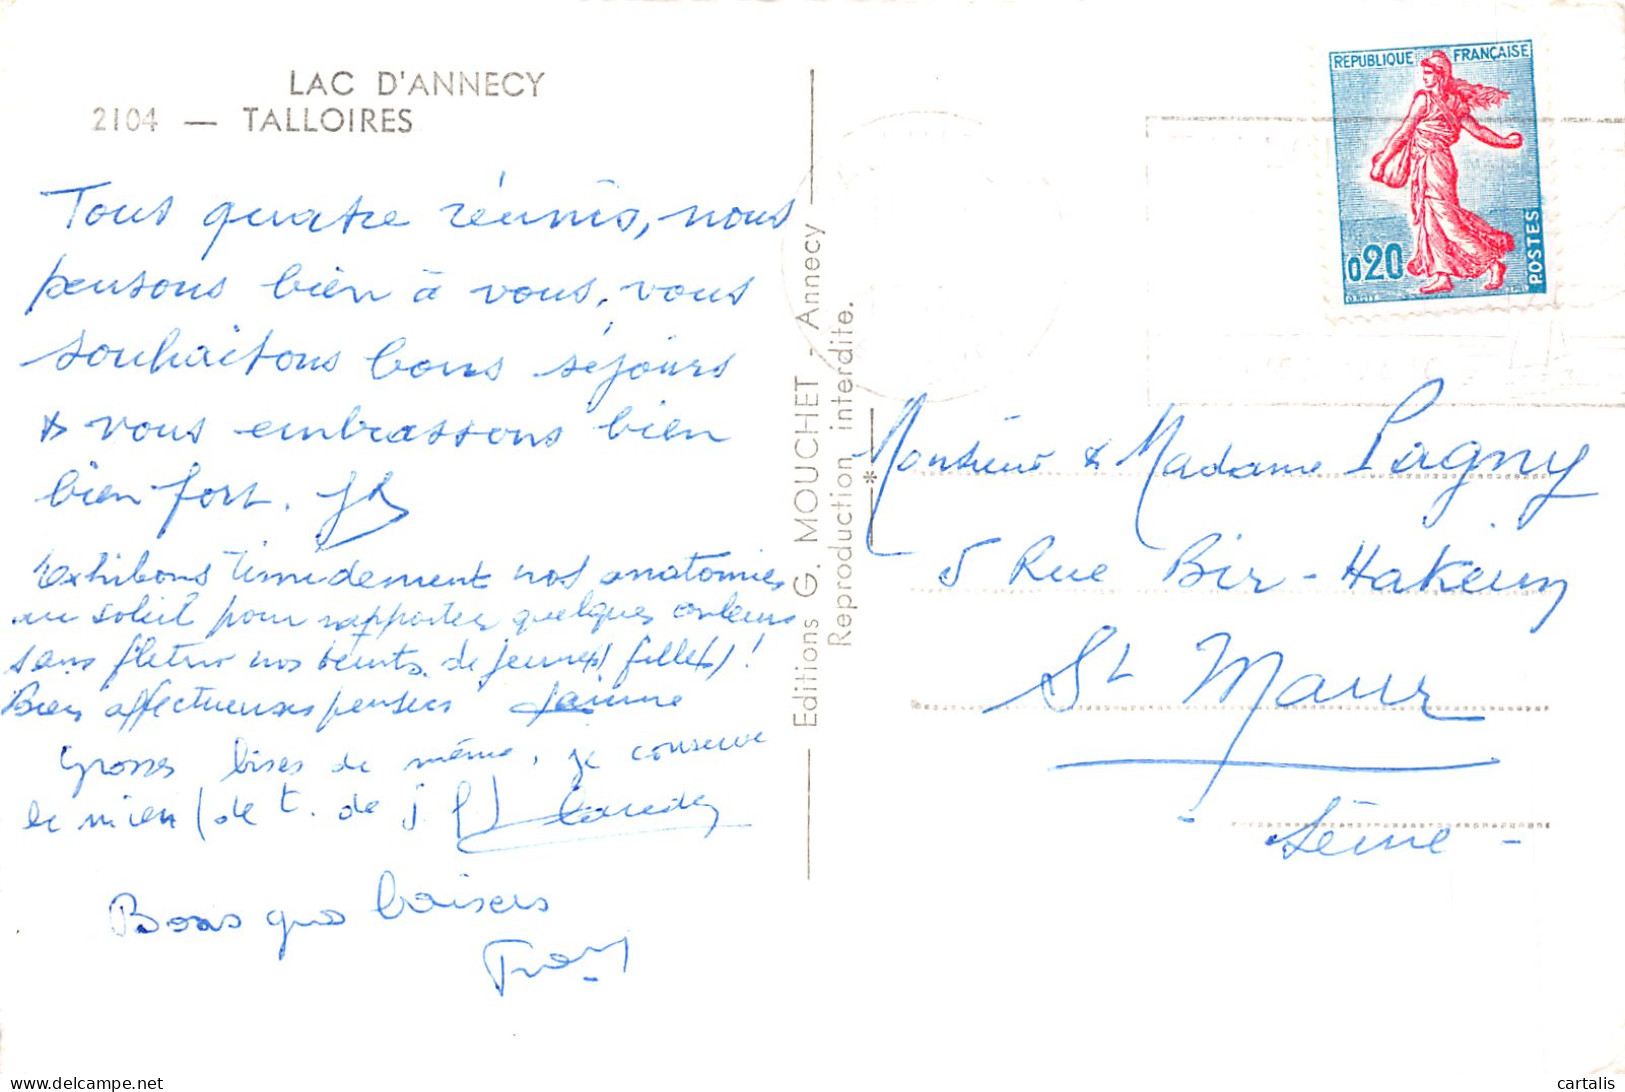 LAC D'ANNECY
2104 — TALLOIRES
Tous quatre réunis, nous
pensons bien à vous, vous
souhaitons bons séjours
& vous embrassons bien
bien fort.
Exhibons timidement nos anatomies
au soleil pour rapporter quelques couleurs
sans flétrir nos teints de jeune(s) fille(s)!
Bien affectueuses pensées
Grosses bises de même, je conserve
le mien (de t. de J.
Bons gros baisers
Editions G. MOUCHET - Annecy
Reproduction interdite.
*
REPUBLIQUE FRANÇAISE
0,20
POSTES
Monsieur & Madame Pagny
5 Rue Bir-Hakeim
St Maur
Seine -
delcampe.net
cartalis